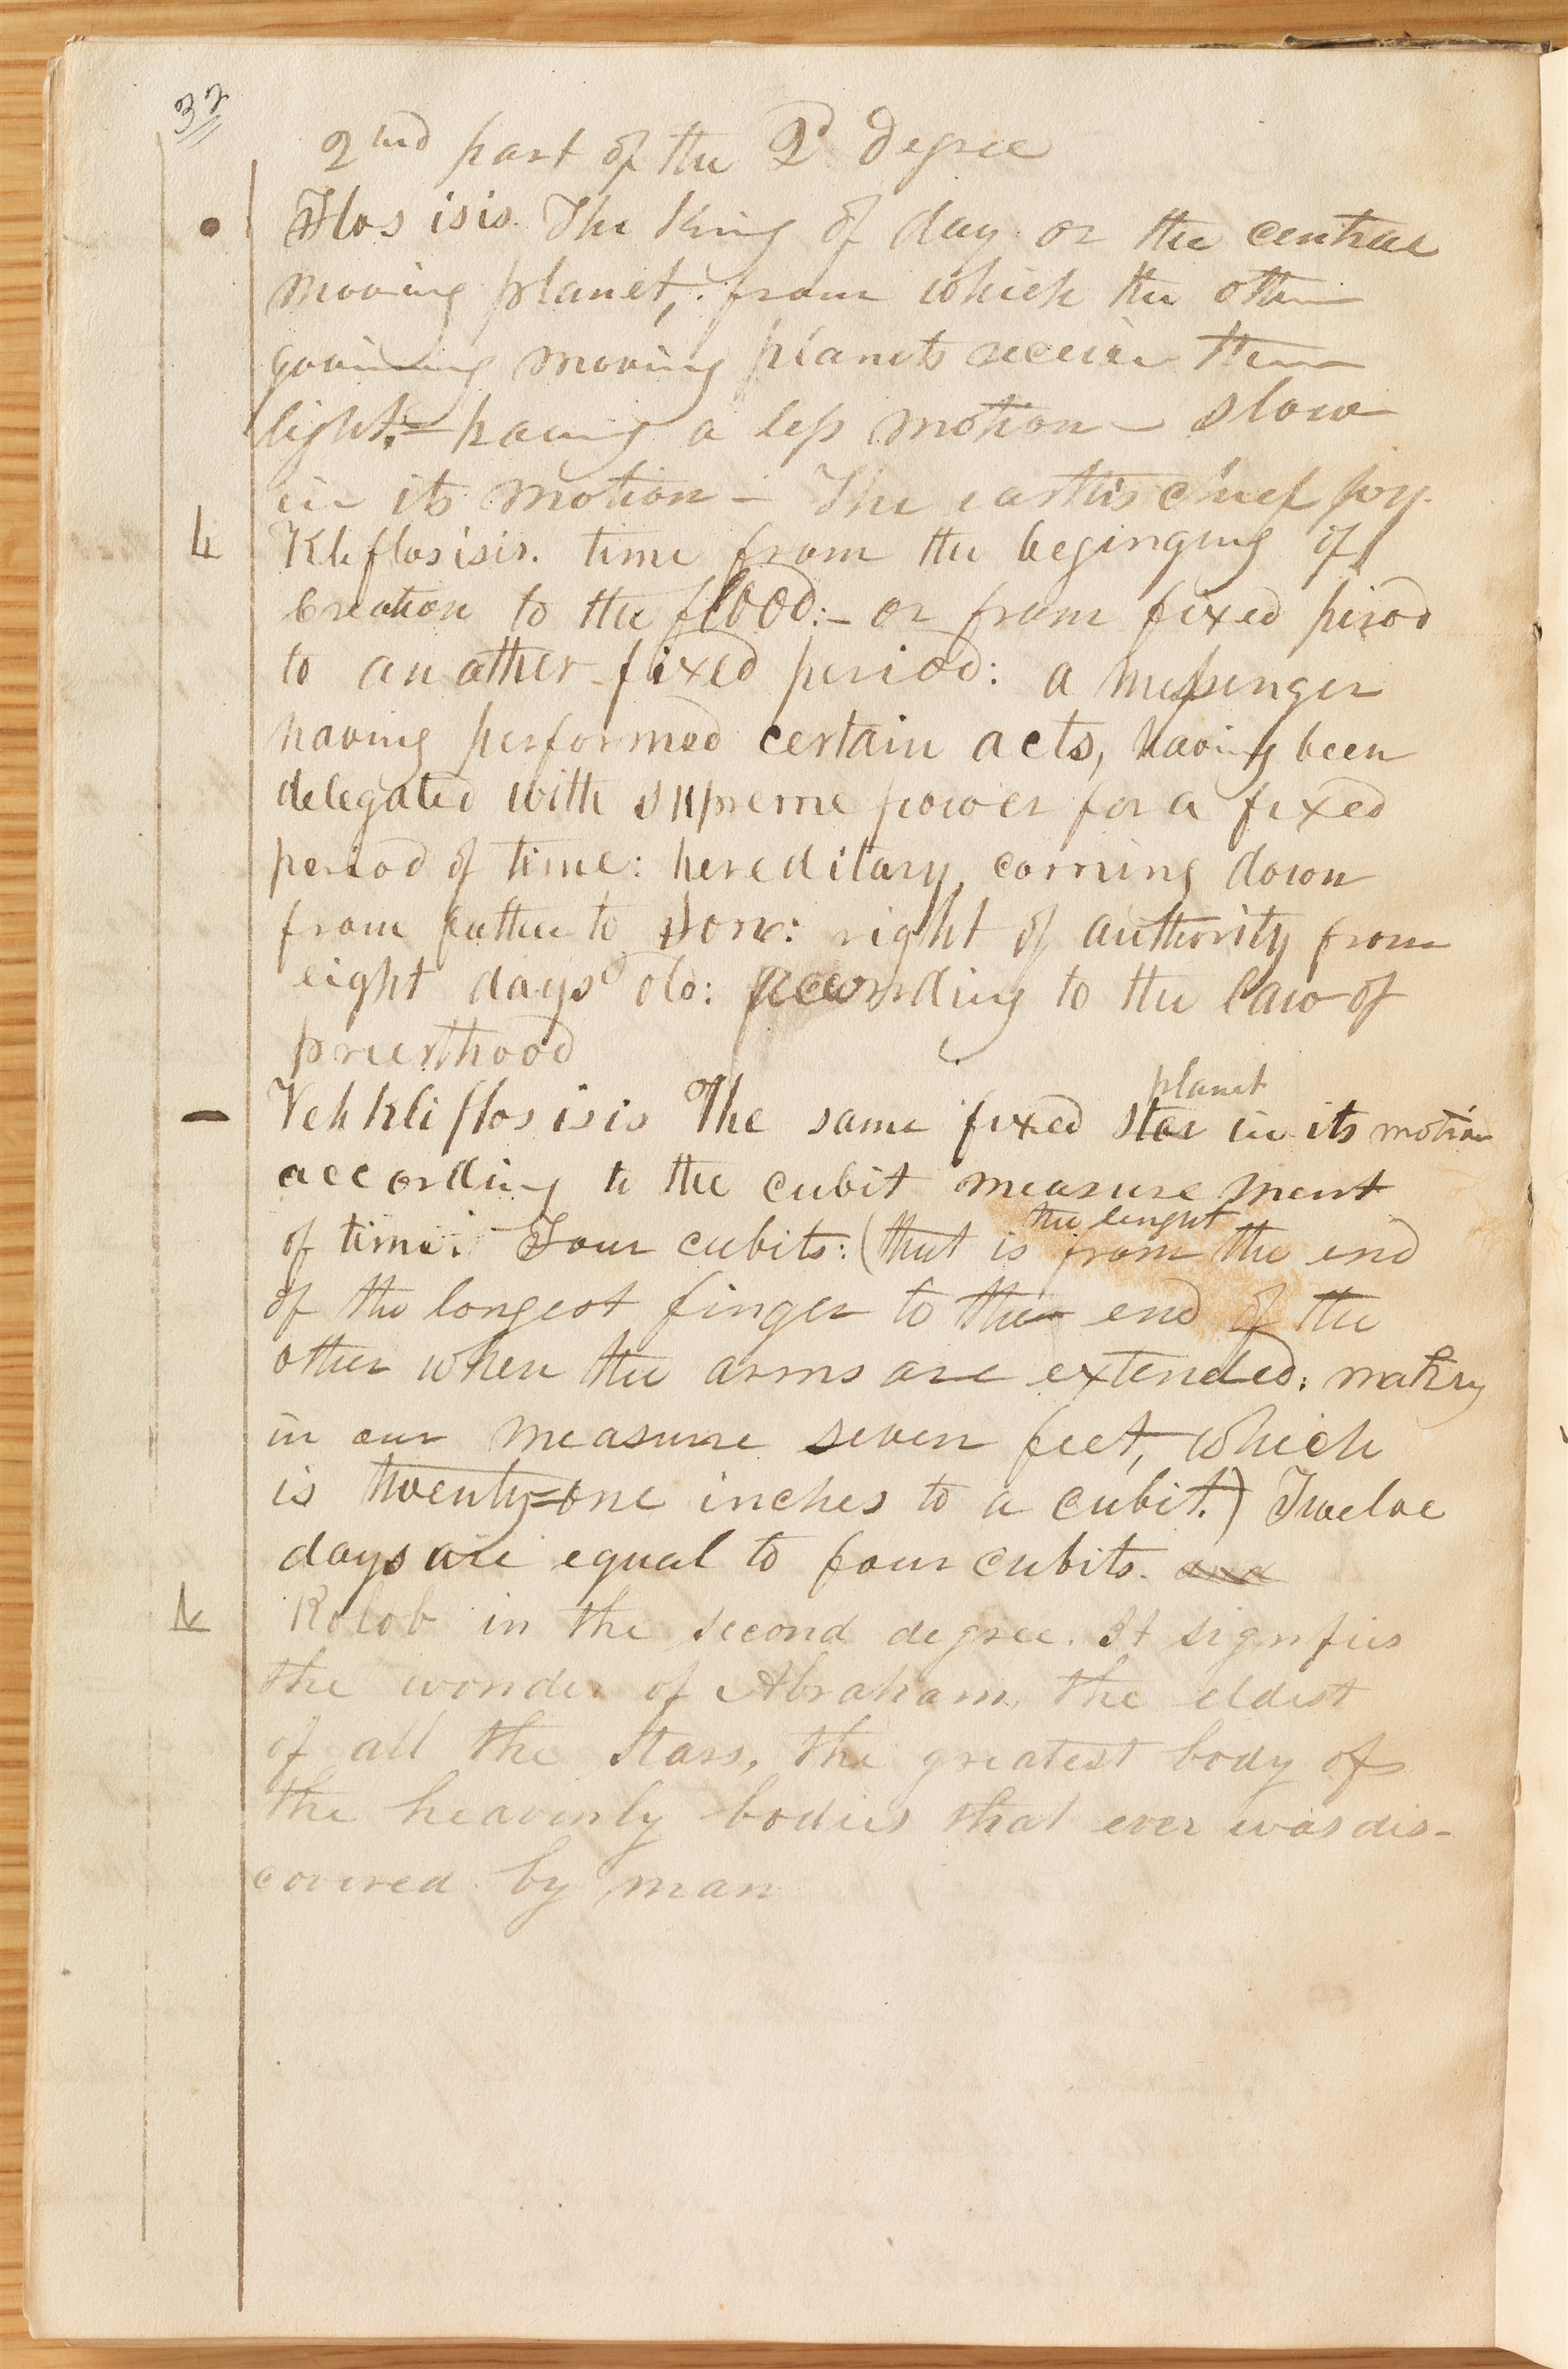 32
2nd part of the 2d degree
Flos isis. The King of day or the central
moving planet, from which the other
governing moving planets receive their
light.= having a less motion – slow
in its motion – The earth's chief joy.
Kliflosisis. time from the beginging of
Creation to the flood:– or from fixed piriod
to another fixed period: a messenger
having performed certain acts, having been
delegated with supreme power for a fixed
period of time: hereditary, coming down
from father to son: right of authority from
eight days old: according to the law of
priesthood
Veh Kli flos isis The same fixed star planet in its motion
according to the cubit measure ment
of time: Four cubits: (that is the lenght from the end
of the longest finger to the end of the
other when the arms are extended: making
in our measure seven feet, which
is twenty=one inches to a cubit.) Twelve
days are equal to four cubits. and
Kolob in the second degree. It signifies
the wonder of Abraham, the eldest
of all the Stars, the greatest body of
the heavenly bodies that ever was dis-
covered by man